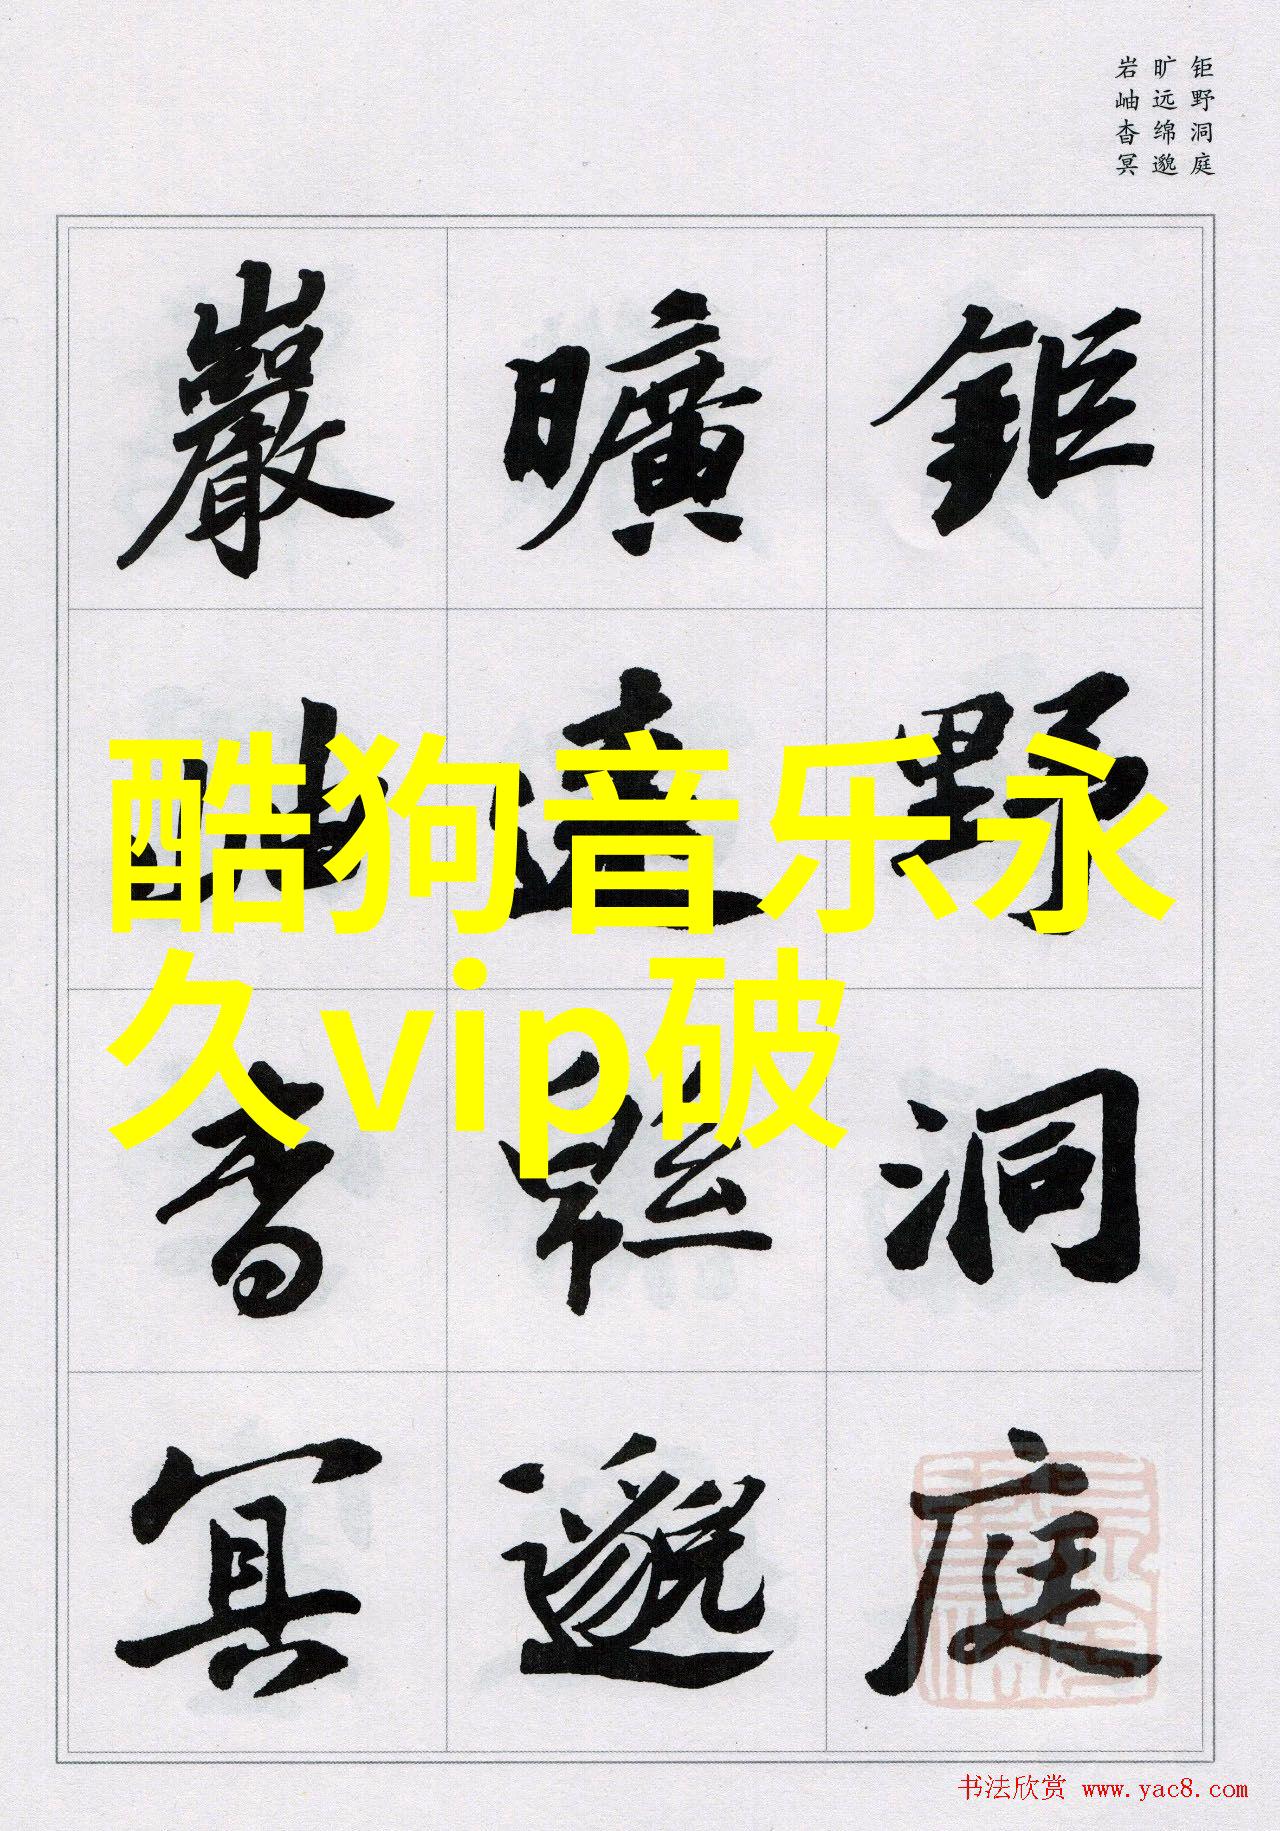 钜野洞庭
旷远绵邈
岩岫杳冥
鉅野洞庭
曠遠緜邈
巖岫杳冥
酷狗音乐永
久vip破
书法欣赏 www.yac8.com